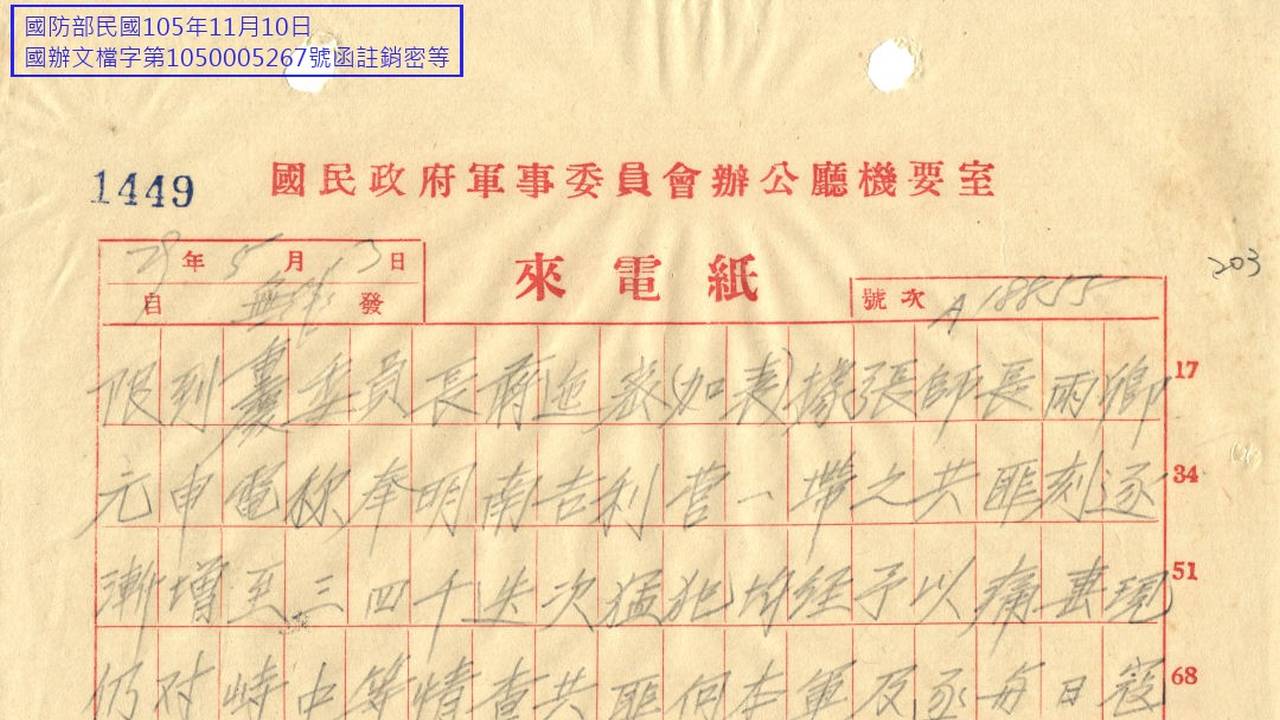 國防部民國105年11月10日
國辦文檔字第1050005267號函註銷密等
1449
國民政府軍事委員會辦公廳機要室
29年5月3日
自無錫發
來電紙
號次 A18855
203
限到重慶委員長蔣迤密(如表)據張師長雨卿 17
元申電称奉明南吉利营一帶之共匪刻逐 34
漸增至三四千迭次猛犯均经予以痛表現 51
仍对峙中等情查共匪向本軍及逐每日寇 68